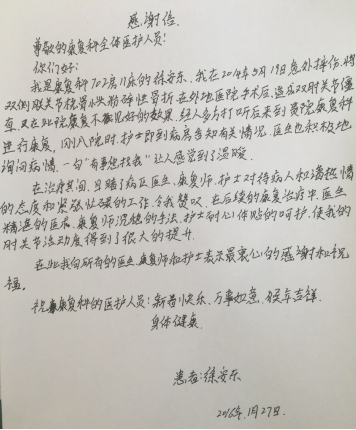 感谢信
尊敬的康复科全体医护人员!
你们好:
我是康复科702房11床的徐安东,我在2014年5月19日意外摔伤,将
双侧肘关节桡骨头粉碎性骨折,在外地医院手术后,造成双肘关节僵
直,又在此院康复不太见好的效果,经人多方打听后来到贵院康复科
进行康复,刚入院时,护士即到病房告知有关情况,医生也积极地
询问病情,一句"有事您找我"让人感觉到了温暖。
在治疗其间,目睹了病区医生、康复师、护士对待病人和蔼热情
的态度和紧张忙碌的工作,令我赞叹,在后续的康复治疗中,医生
精湛的医术,康复师沉稳的手法,护士耐心体贴的呵护,使我的
肘关节活动度得到了很大的提升。
在此我向所有的医生、康复师和护士表示最衷心的感谢和祝
福。
祝康复科的医护人员:新春快乐、万事如意、猴年吉祥
身体健康.
患者:徐安东
2016年1月27日.